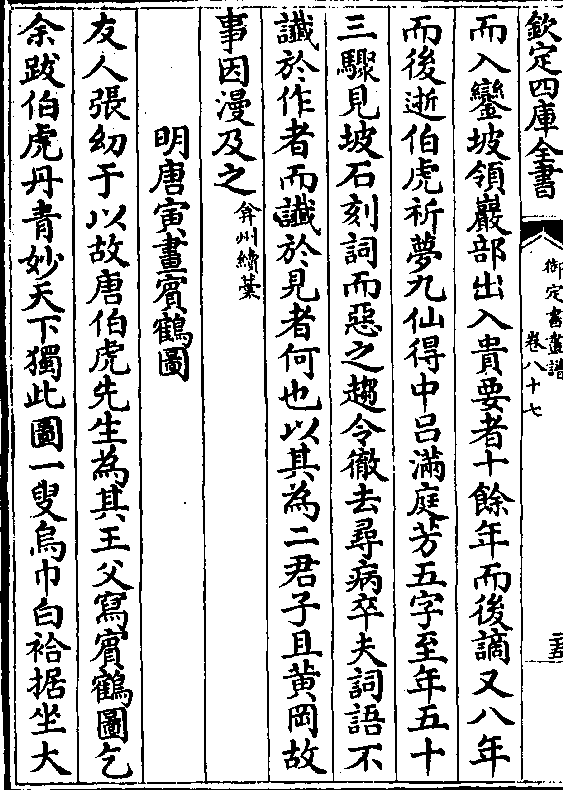 欽定四庫全書
御定書畫譜
卷八十七
而入鑾坡領巖部出入貴要者十餘年而後謫又八年
而後逝伯虎祈夢九仙得中呂滿庭芳五字至年五十
三驟見坡石刻詞而惡之趨令徹去尋病卒夫詞語不
讖於作者而讖於見者何也以其為二君子且黄岡故
事因漫及之弇州續藁
明唐寅畫賓鶴圖
友人張㓜于以故唐伯虎先生為其王父寫賓鶴圖乞
余跋伯虎丹青妙天下獨此圖一叟烏巾白袷据坐大